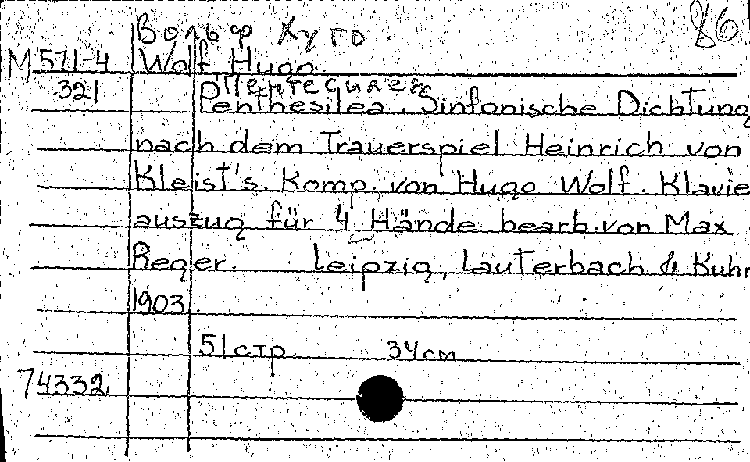 86
Вольф Хуго
M 571-4 Wolf Hugo.
321
Пентесилея
Penthesilea. Sinfonische Dichtung
nach dem Trauerspiel Heinrich von
Kleist's. Komp. von Hugo Wolf. Klavie
auszug für 4 Hände bearb. von Max
Reger. Leipzig, Lauterbach & Kuhn
1903
51 стр 34 см
74332